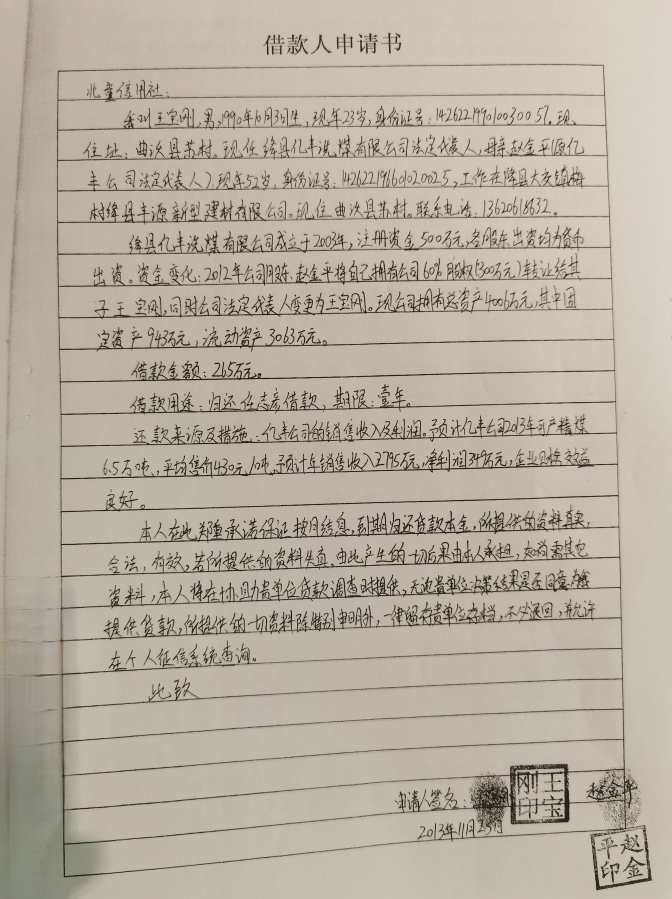 借款人申请书
北董信用社：
我叫王宝刚，男，1990年10月3日生，现年23岁，身份证号：142622199010030057。现
住址：曲沃县苏村。现任绛县亿丰洗煤有限公司法定代表人，母亲赵金平（原亿
丰公司法定代表人），现年52岁，身份证号：，工作在绛县大交镇
村绛县丰源新型建材有限公司。现住曲沃县苏村。联系电话：13620618632。
绛县亿丰洗煤有限公司成立于2003年，注册资金500万元，各股东出资均为货币
出资。资金变化：2012年公司股东赵金平将自己拥有公司60%股权（300万元）转让给其
子王宝刚，同时公司法定代表人变更为王宝刚。现公司拥有总资产4006万元，其中固
定资产943万元，流动资产3063万元。
借款金额：265万元。
借款用途：归还任志彦借款，期限：壹年。
还款来源及措施：亿丰公司的销售收入及利润。预计亿丰公司2013年可产精煤
6.5万吨，平均售价430元/吨，预计年销售收入2795万元，净利润349万元，企业经济效益
良好。
本人在此郑重承诺保证按月结息，到期归还贷款本金，所提供的资料真实，
合法，有效，若所提供的资料失真，由此产生的一切后果由本人承担，如尚需其它
资料，本人将在协助贵单位贷款调查时提供，无论贵单位决策结果是否同意
提供贷款，所提供的一切资料除特别申明外，一律留存贵单位存档，不必退回，并允许
在个人征信系统查询。
此致
申请人签名： 王宝刚印 赵金平
2013年11月25日
赵金平印